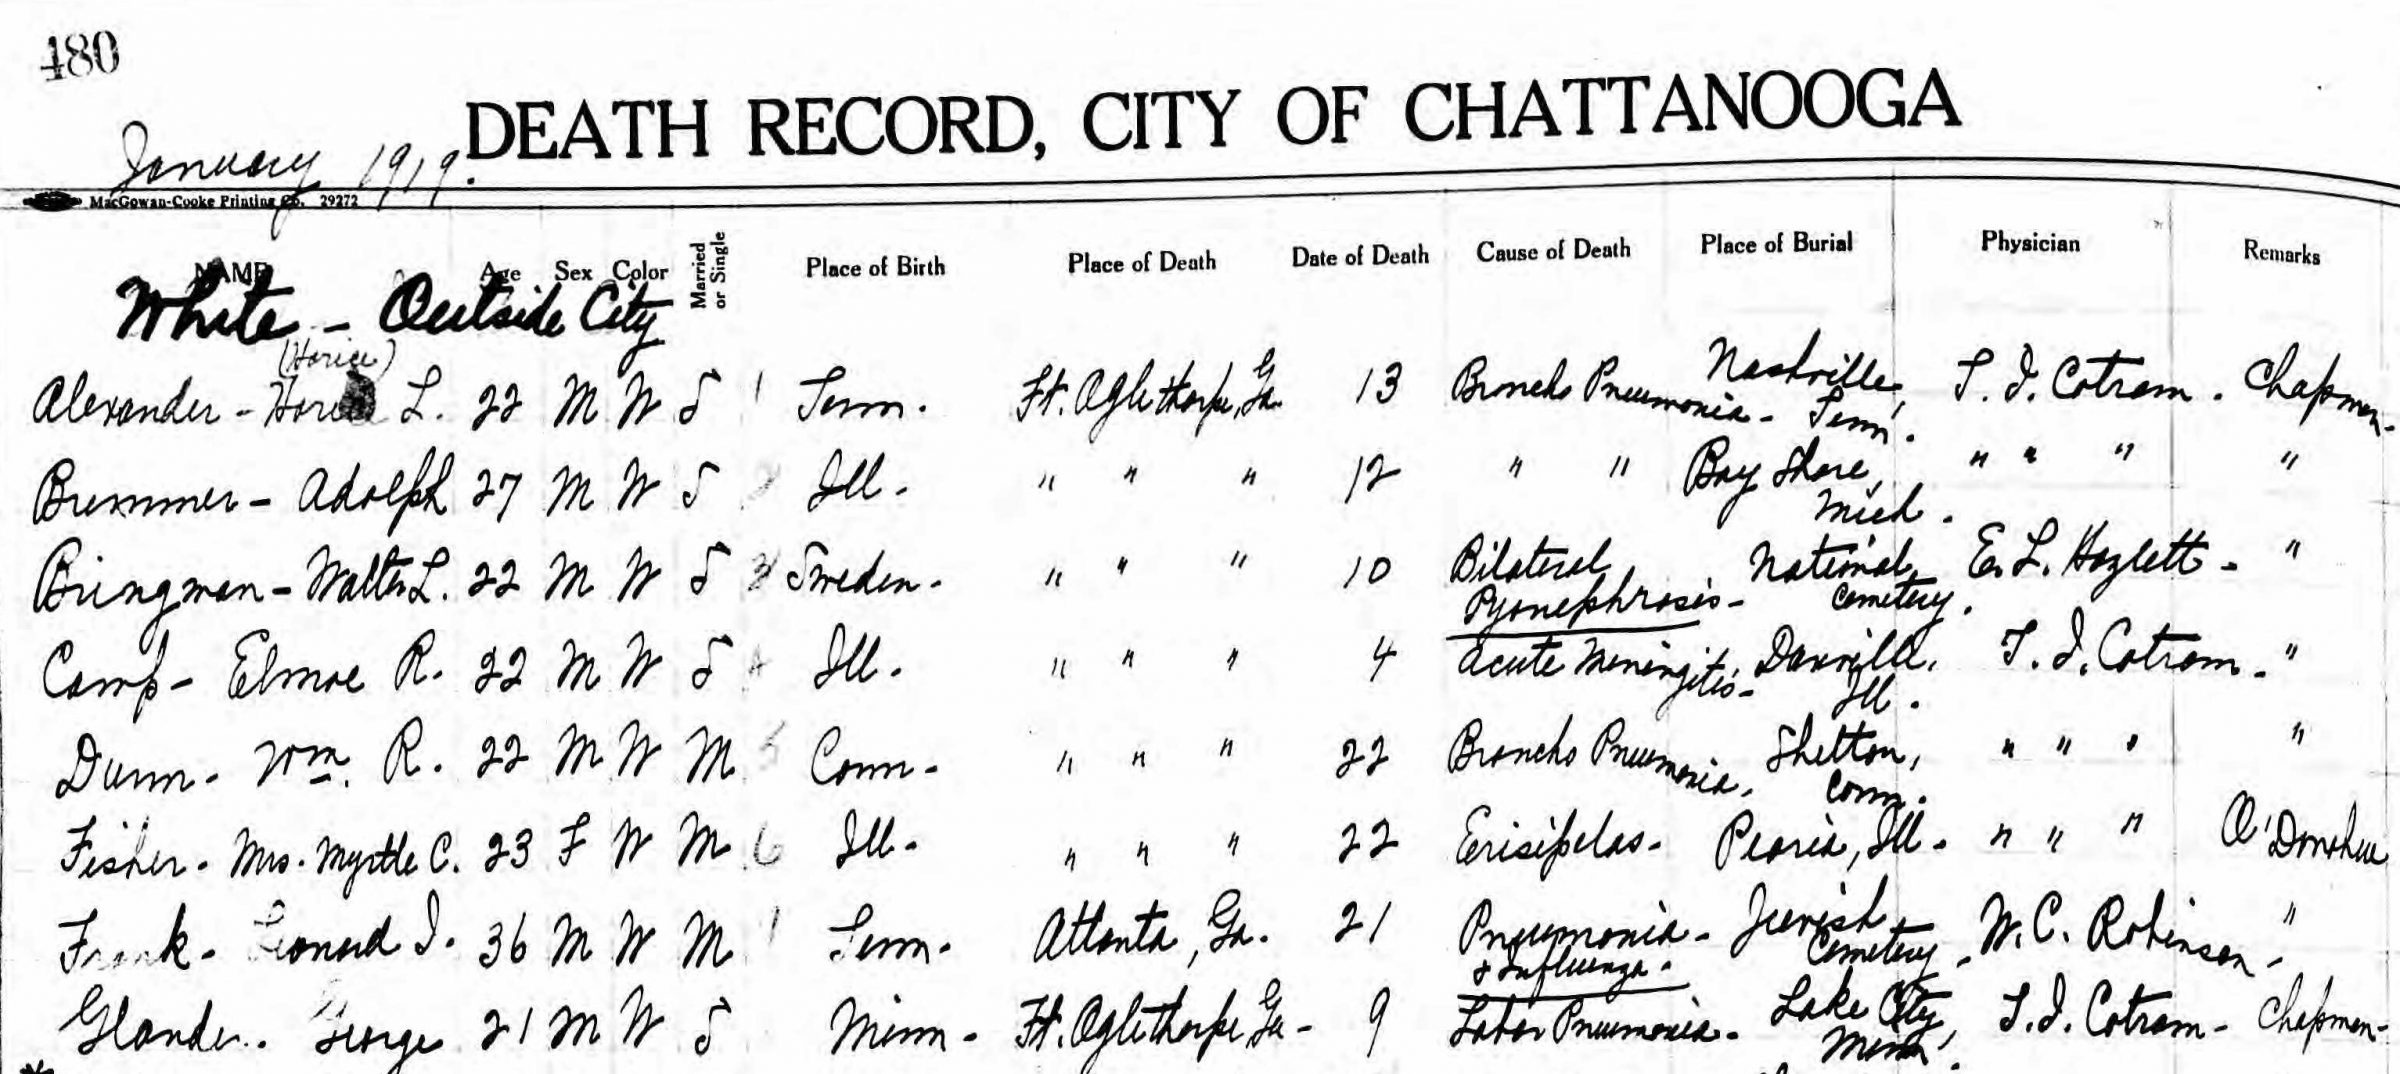 480
DEATH RECORD, CITY OF CHATTANOOGA
January 1919.
MacGowan-Cooke Printing Co. 29272
NAME Age Sex Color Married or Single Place of Birth Place of Death Date of Death Cause of Death Place of Burial Physician Remarks
White - Outside City
(Horice)
Alexander - L. 22 M W S 1 Tenn. Ft. Oglethorpe, Ga. 13 Broncho Pneumonia - Nashville, Tenn. T. I. Cotram. Chapman -
Bremmer - Adolph 27 M W S Ill. " " " 12 " " Bay Shore, Mich. " " " "
Bringman - Walter L. 22 M W S 3 Sweden. " " " 10 Bilateral Pyonephrosis - National Cemetery. E. L. Hazlett - "
Camp - Elmoe R. 22 M W S 4 Ill. " " " 4 Acute Meningitis - Danville, Ill. T. I. Cotram - "
Dunn - Wm. R. 22 M W M 5 Conn - " " " 22 Broncho Pneumonia. Shelton, Conn. " " " "
Fisher - Mrs. Myrtle C. 23 F W M 6 Ill - " " " 22 Erisipelas - Peoria, Ill. " " " O'Donohue
Frank - Leonard I. 36 M W M 1 Tenn - Atlanta, Ga. 21 Pneumonia - & Influenza. Jewish Cemetery - W. C. Robinson - "
Glander. George 21 M W S Minn - Ft. Oglethorpe Ga - 9 Lobar Pneumonia - Lake City, Minn. T. I. Cotram - Chapman -